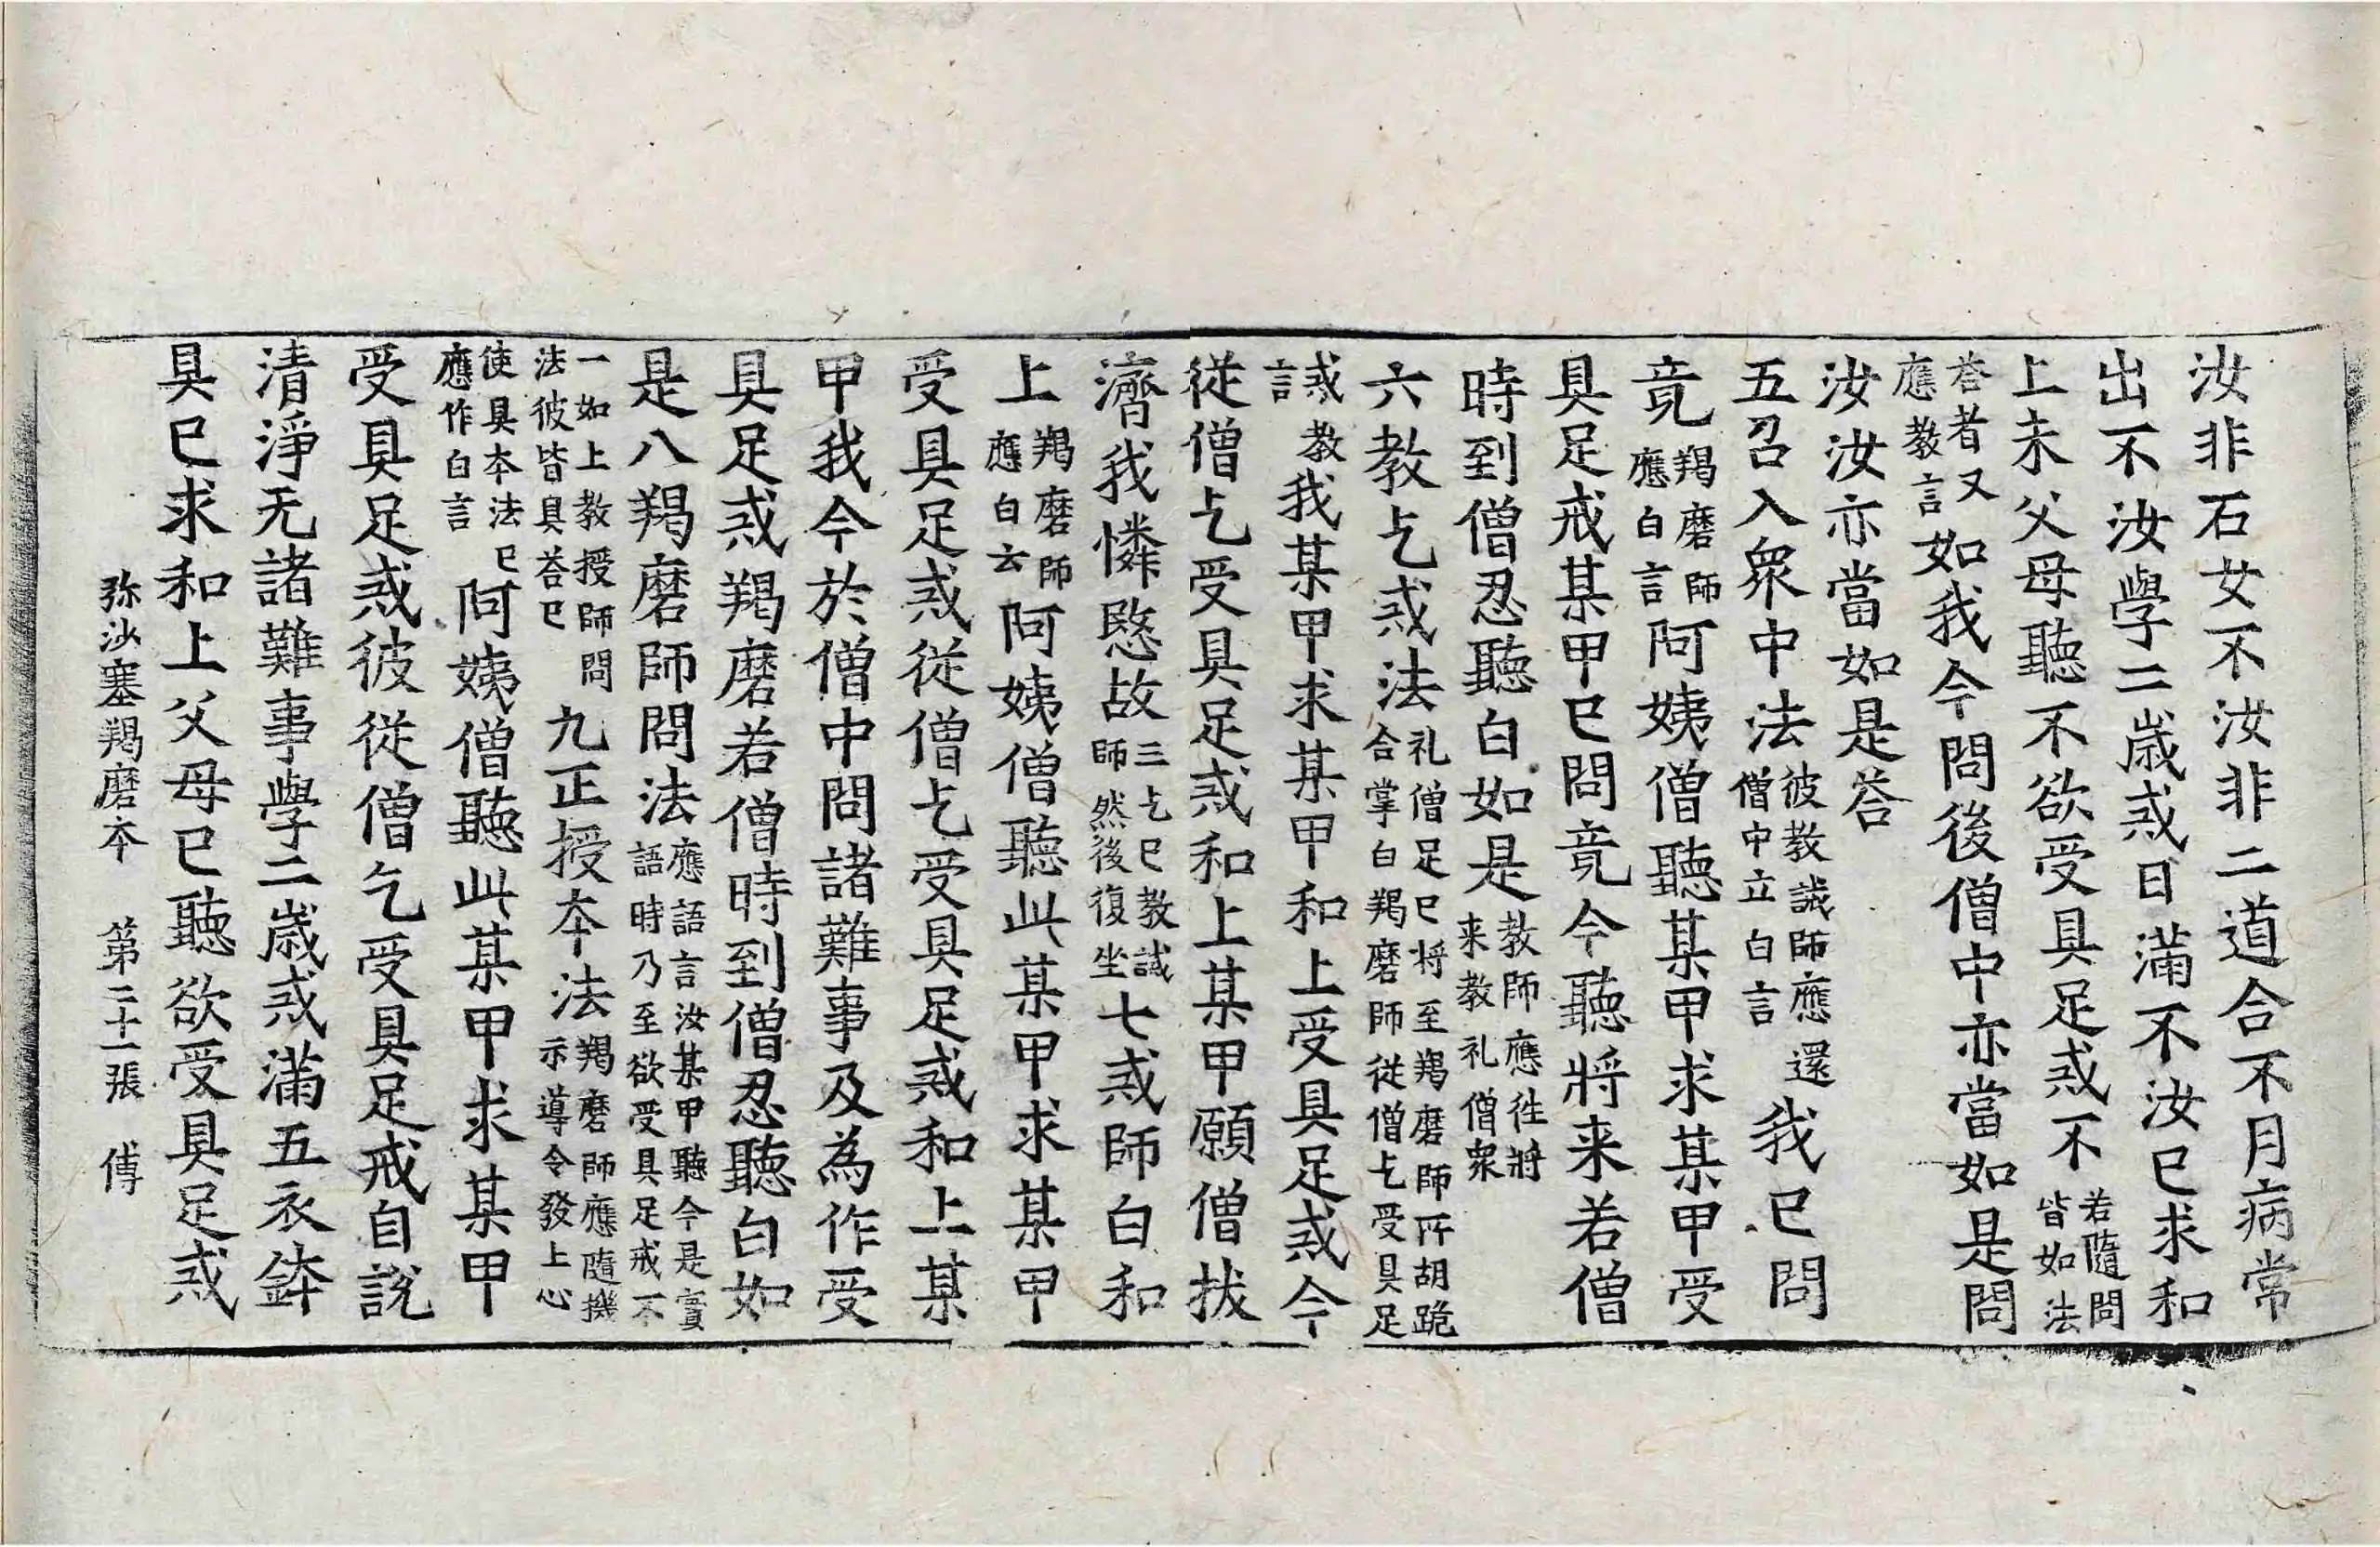 汝非石女不汝非二道合不月病常
出不汝學二歲戒日滿不汝已求和
上未父母聽不欲受具足戒不若隨問皆如法
荅者又應教言如我今問後僧中亦當如是問
汝汝亦當如是荅
五召入眾中法彼教誡師應還僧中立白言我已問
竟羯磨師應白言阿姨僧聽某甲求某甲受
具足戒某甲已問竟今聽將来若僧
時到僧忍聽白如是教師應往將来教礼僧眾
六教乞戒法礼僧足已将至羯磨師所胡跪合掌白羯磨師從僧乞受具足
誡教言我某甲求某甲和上受具足戒今
從僧乞受具足戒和上某甲願僧拔
濟我憐愍故三乞已教誡師然後復坐七戒師白和
上羯磨師應白云阿姨僧聽此某甲求某甲
受具足戒從僧乞受具足戒和上某
甲我今於僧中問諸難事及為作受
具足戒羯磨若僧時到僧忍聽白如
是八羯磨師問法應語言汝某甲聽今是實語時乃至欲受具足戒不
一如上教授師問法彼皆具荅已九正授本法羯磨師應隨機示導令發上心
使具本法已應作白言阿姨僧聽此某甲求某甲
受具足戒彼從僧乞受具足戒自說
清淨无諸難事學二歲戒滿五衣鉢
具已求和上父母已聽欲受具足戒
弥沙塞羯磨本 第二十一張 傅